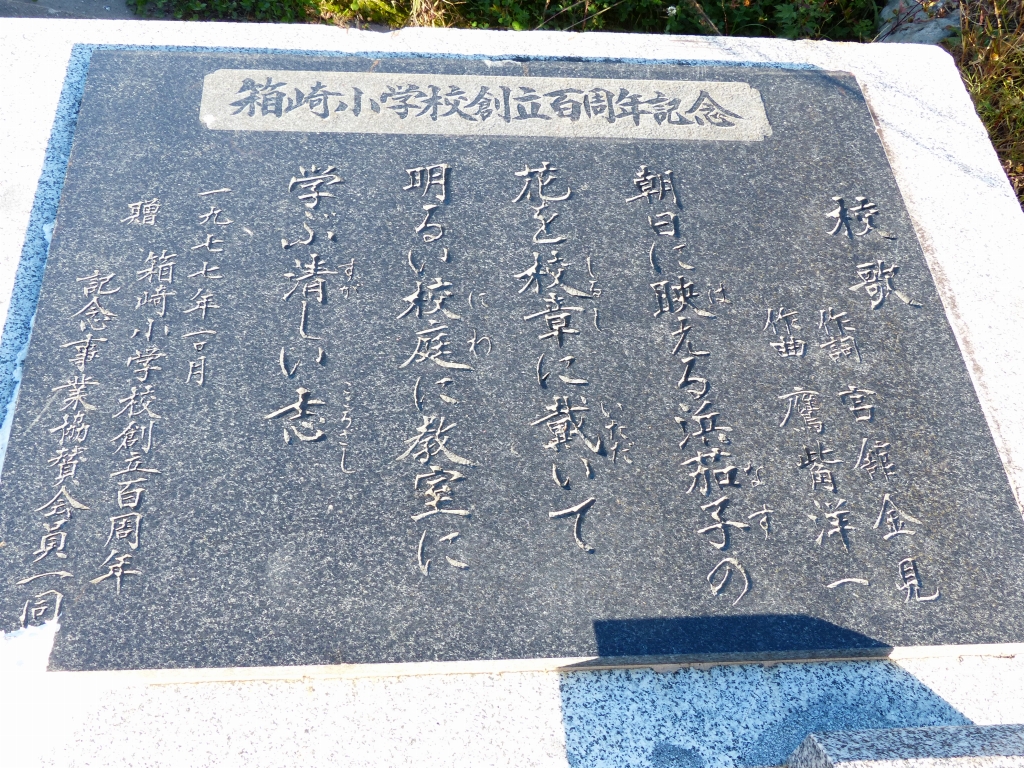 箱崎小学校創立百周年記念
校歌
作詞 宮舘金見
作曲 鷹觜洋一
朝日に映える浜茄子の
は
なす
花を校章に戴いて
しるし
いただ
明るい校庭に教室に
にわ
学ぶ清しい志
すが
こころざし
一九七七年一一月
贈 箱崎小学校創立百周年
記念事業協賛会員一同